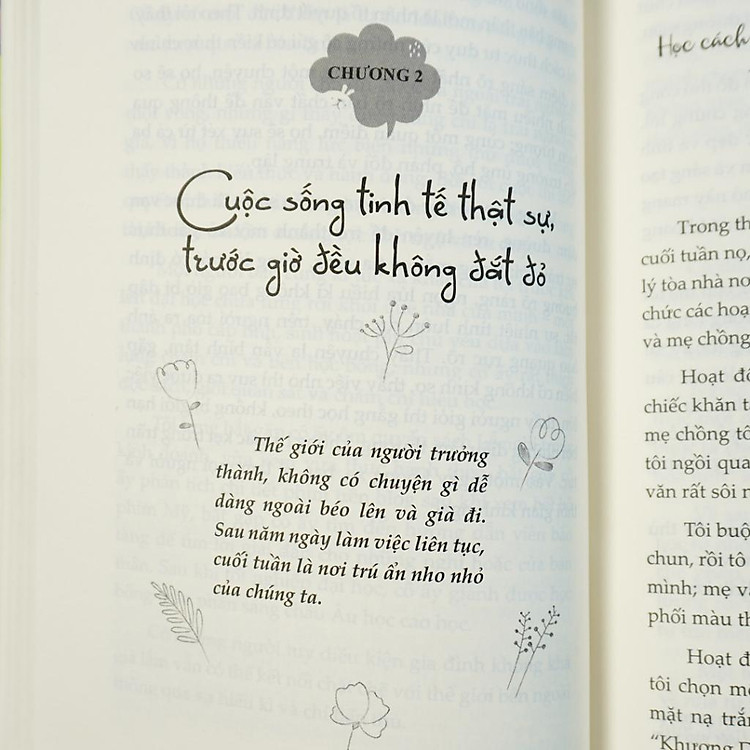 CHƯƠNG 2
Cuộc sống tinh tế thật sự,
trước giờ đều không đắt đỏ
Thế giới của người trưởng
thành, không có chuyện gì dễ
dàng ngoài béo lên và già đi.
Sau năm ngày làm việc liên tục,
cuối tuần là nơi trú ẩn nho nhỏ
của chúng ta.
Học cách
Trong th
cuối tuần nọ,
lý tòa nhà nơ
chức các hoạ
và mẹ chồng
Hoạt đ
chiếc khăn t
mẹ chồng tô
tôi ngồi qua
văn rất sôi n
Tôi buộ
chun, rồi tô
mình; mẹ v
phối màu th
Hoạt đ
tôi chọn mộ
mặt nạ trắn
“Khương D